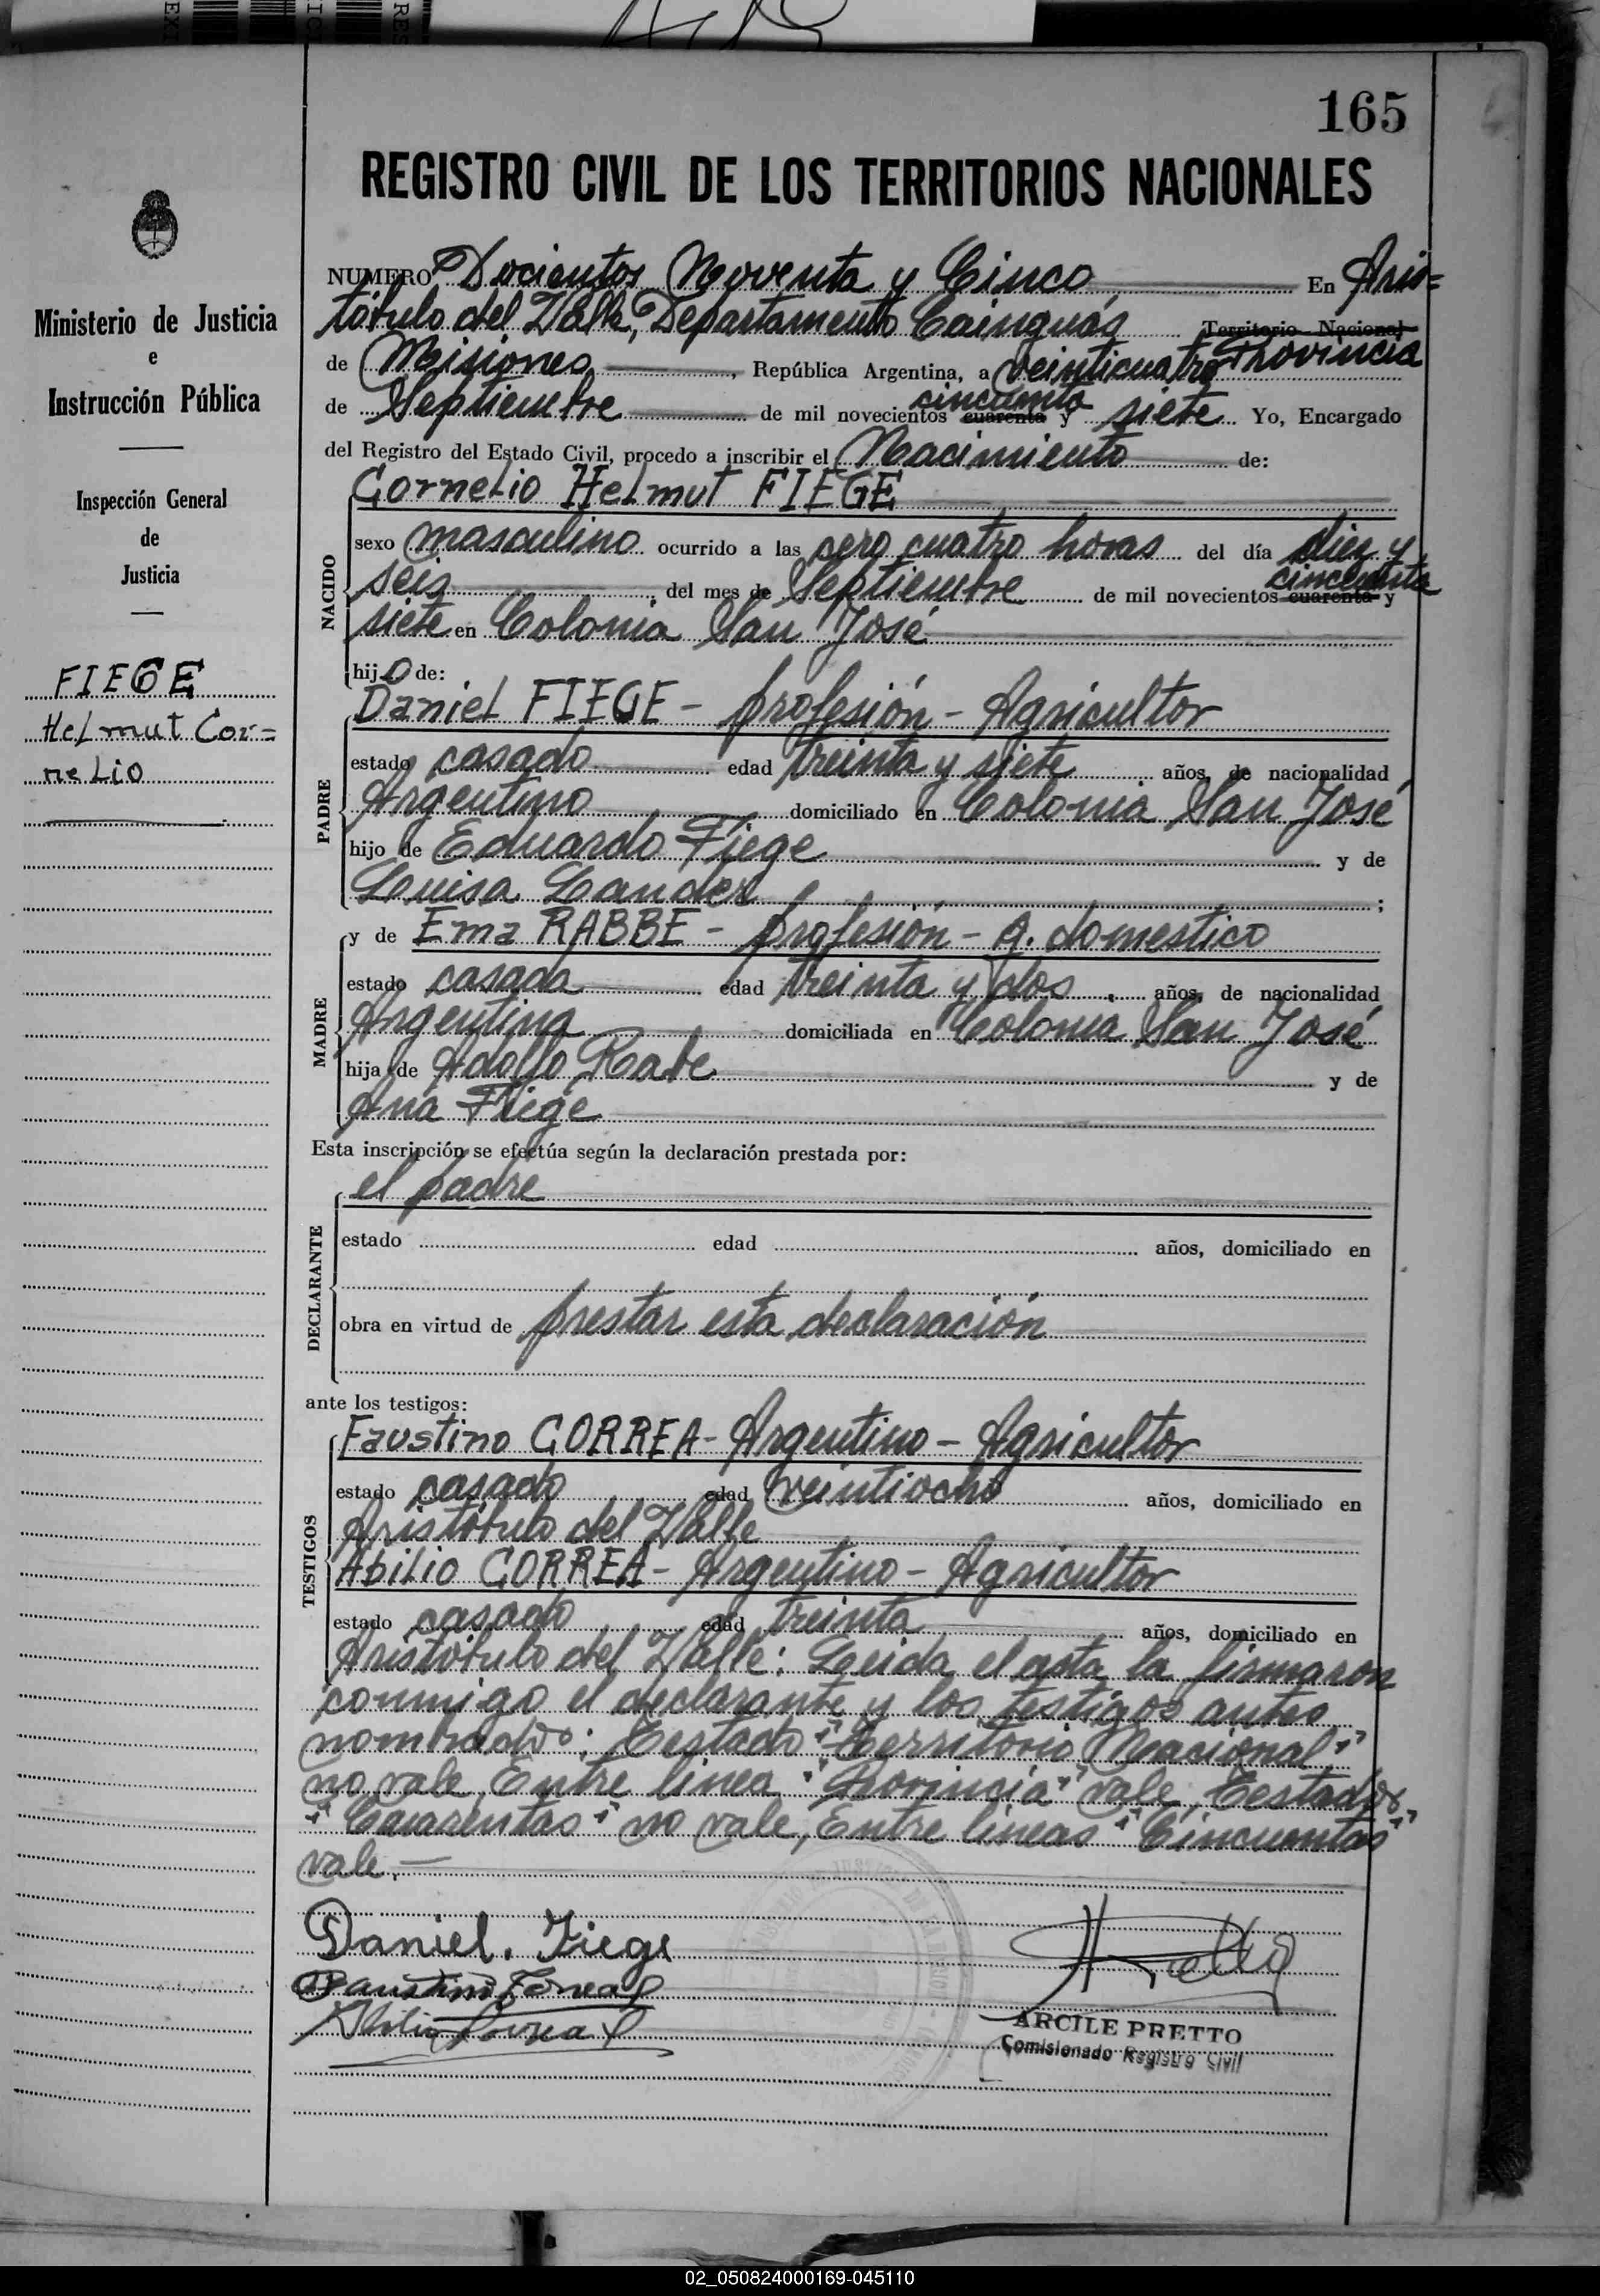 165
REGISTRO CIVIL DE LOS TERRITORIOS NACIONALES
Ministerio de Justicia
e
Instrucción Pública
Inspección General
de
Justicia
FIEGE
Helmut Cor=
nelio
NUMERO Docientos Noventa y Cinco En Aris=
tóbulo del Valle, Departamento Cainguás Territorio Nacional
de Misiones, República Argentina, a veinticuatro Provincia
de Septiembre de mil novecientos cuarenta cincuenta y siete Yo, Encargado
del Registro del Estado Civil, procedo a inscribir el Nacimiento de:
Cornelio Helmut FIEGE
NACIDO
sexo masculino ocurrido a las cero cuatro horas del día diez y
seis del mes de Septiembre de mil novecientos cuarenta cincuenta y
siete en Colonia San José
hijo de:
PADRE
Daniel FIEGE - profesión - Agricultor
estado casado edad treinta y siete años, de nacionalidad
Argentino domiciliado en Colonia San José
hijo de Eduardo Fiege y de
Luisa Lander;
MADRE
y de Ema RABBE - profesión - q. domestico
estado casada edad treinta y dos años, de nacionalidad
Argentina domiciliada en Colonia San José
hija de Adolfo Rabe y de
Ana Fiege
Esta inscripción se efectúa según la declaración prestada por:
DECLARANTE
el padre
estado edad años, domiciliado en
obra en virtud de prestar esta declaración
ante los testigos:
TESTIGOS
Faustino CORREA - Argentino - Agricultor
estado casado edad veintiocho años, domiciliado en
Aristóbulo del Valle
Abilio CORREA - Argentino - Agricultor
estado casado edad treinta años, domiciliado en
Aristóbulo del Valle: Leida el acta la firmaron
conmigo el declarante y los testigos antes
nombrados: Testado "Territorio Nacional"
no vale, Entre linea "Provincia" vale, Testados
"Cuarentas" no vale, Entre lineas "Cincuentas"
vale.-
Daniel. Fiege
Faustino Correa
Abilio Correa
ARCILE PRETTO
Comisionado Registro Civil
02_050824000169-045110